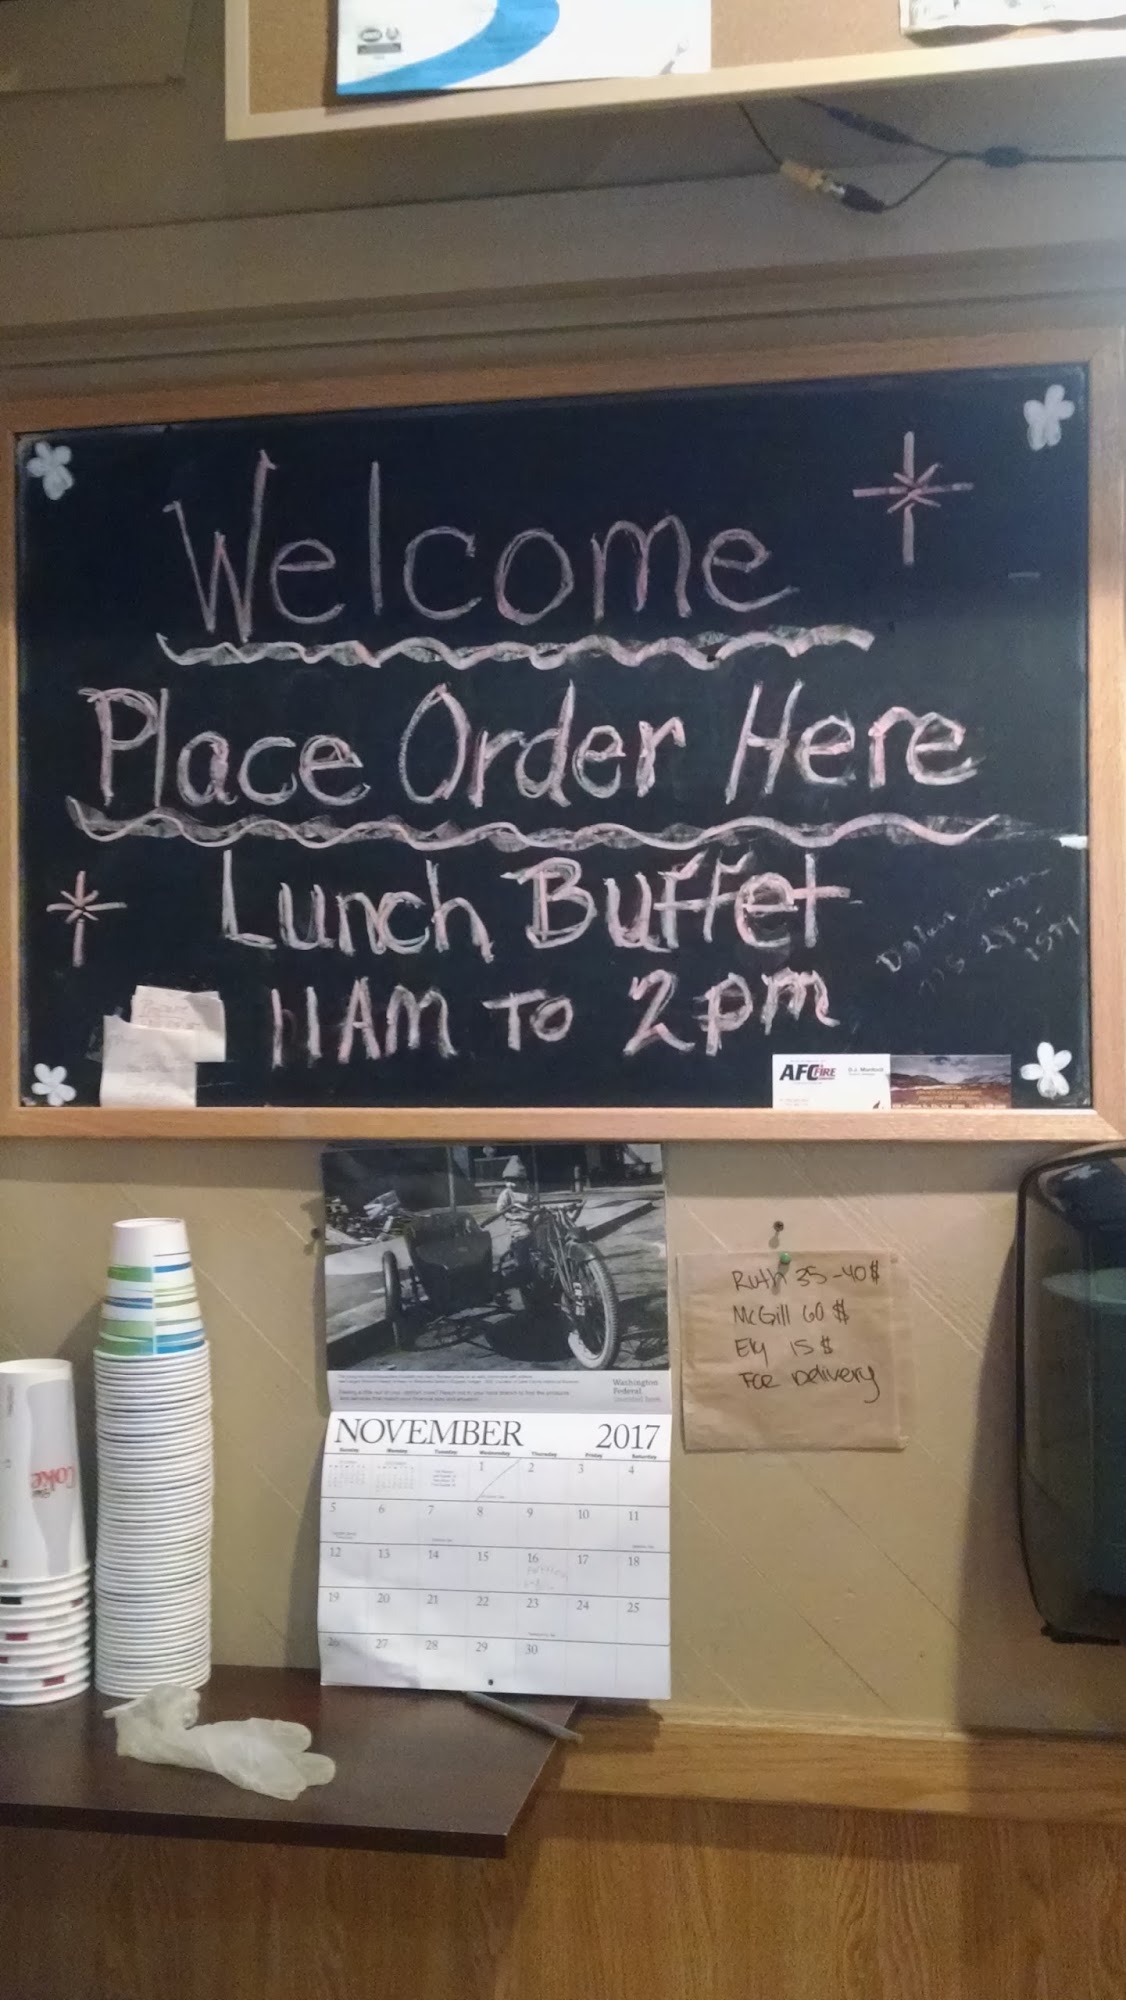 Welcome
Place Order Here
Lunch Buffet
11AM TO 2pm
AFC FIRE
Ruth 35-40$
McGill 60$
Ely 15$
For Delivery
Washington
Federal
NOVEMBER 2017
Sunday Monday Tuesday Wednesday Thursday Friday Saturday
1 2 3 4
5 6 7 8 9 10 11
12 13 14 15 16 17 18
19 20 21 22 23 24 25
26 27 28 29 30
Coke